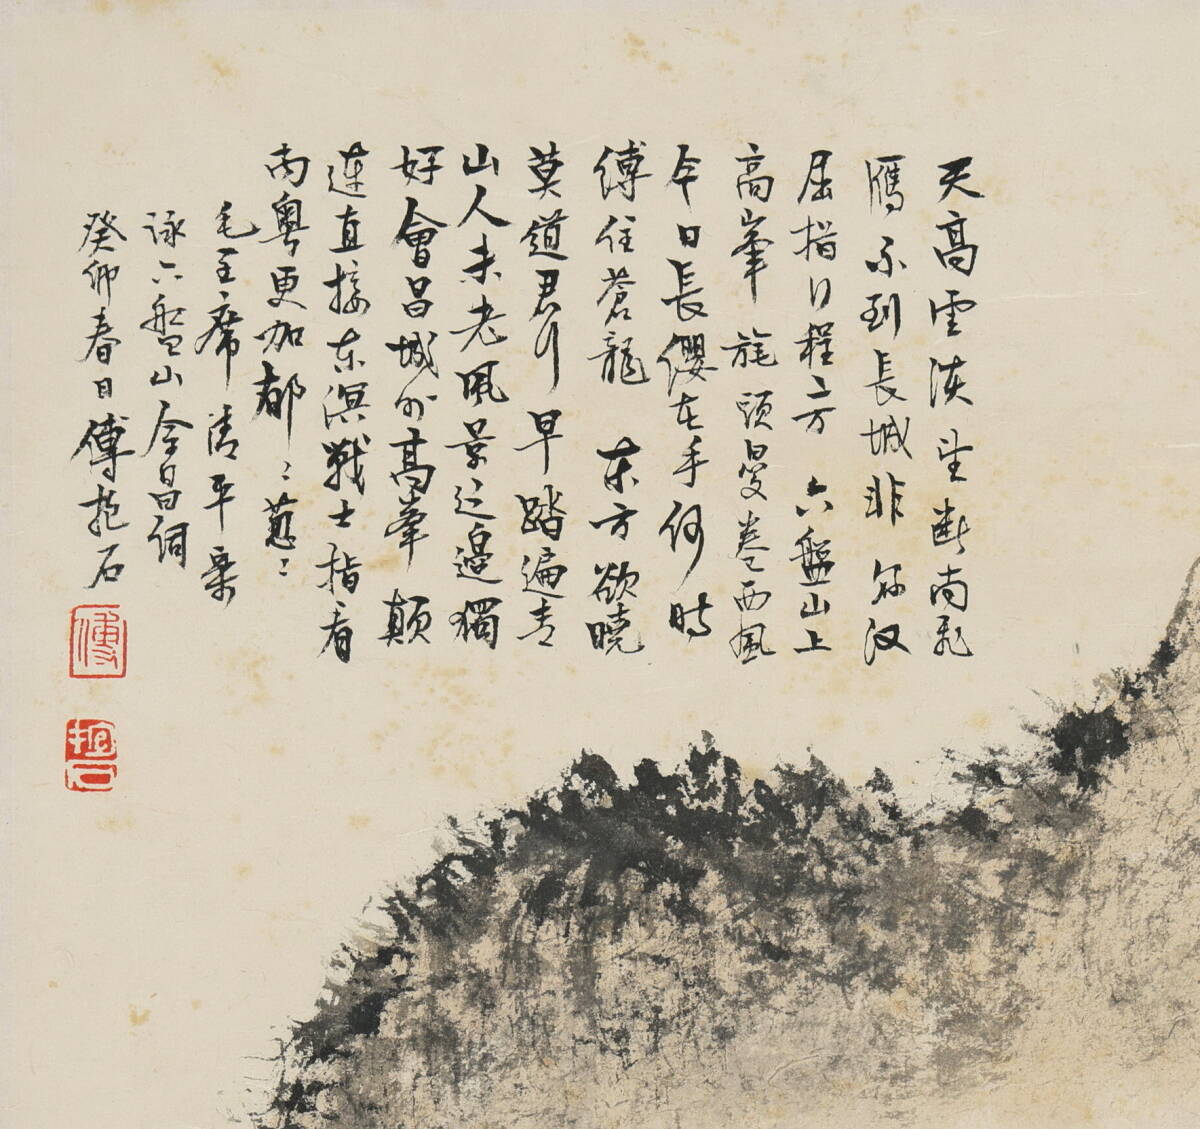 天高雲淡望斷南飛
雁不到長城非好汉
屈指行程二万 六盤山上
高峯 旄頭曼卷西風
今日長纓在手何時
縛住蒼龍 東方欲曉
莫道君行早踏遍青
山人未老風景这邊獨
好 會昌城外高峯 顛
連直接东溟戰士指看
南粤更加郁〻葱〻
毛主席 清平樂
詠六盤山會昌詞
癸卯春日傅抱石
傅
抱石